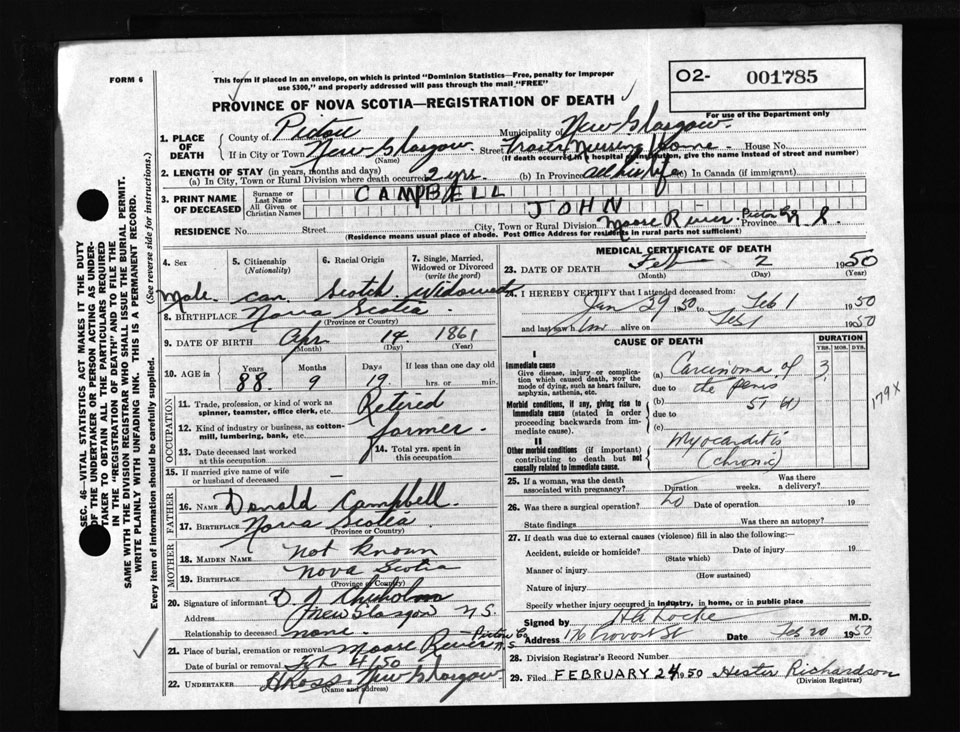 FORM 6
This form if placed in an envelope, on which is printed "Dominion Statistics—Free, penalty for improper
use $300," and properly addressed will pass through the mail "FREE"
O2- 001785
PROVINCE OF NOVA SCOTIA—REGISTRATION OF DEATH
For use of the Department only
1. PLACE OF DEATH
County of Pictou Municipality of New Glasgow.
If in City or Town New Glasgow. Street Nursing Home. House No.
(Name) (If death occurred in a hospital or institution, give the name instead of street and number)
2. LENGTH OF STAY (in years, months and days)
(a) In City, Town or Rural Division where death occurred 2 yrs. (b) In Province all his life (c) In Canada (if immigrant)
3. PRINT NAME OF DECEASED
Surname or Last Name CAMPBELL
All Given or Christian Names JOHN
RESIDENCE No. Street City, Town or Rural Division Moose River. Pictou Co Province N. S.
(Residence means usual place of abode. Post Office Address for residents in rural parts not sufficient)
4. Sex 5. Citizenship (Nationality) 6. Racial Origin 7. Single, Married, Widowed or Divorced (write the word)
Male. can. Scotch Widowed
8. BIRTHPLACE Nova Scotia
(Province or Country)
9. DATE OF BIRTH Apr. 14. 1861
(Month) (Day) (Year)
10. AGE in Years Months Days If less than one day old
88. 9 19 hrs. or min.
OCCUPATION
11. Trade, profession, or kind of work as spinner, teamster, office clerk, etc. Retired
12. Kind of industry or business, as cotton-mill, lumbering, bank, etc. farmer.
13. Date deceased last worked at this occupation 14. Total yrs. spent in this occupation
15. If married give name of wife or husband of deceased —
FATHER
16. NAME Donald Campbell
17. BIRTHPLACE Nova Scotia
(Province or Country)
MOTHER
18. MAIDEN NAME not known
19. BIRTHPLACE Nova Scotia
(Province or Country)
20. Signature of informant D. J. Chisholm
Address New Glasgow N.S.
Relationship to deceased none.
21. Place of burial, cremation or removal Moose River Pictou Co N.S
Date of burial or removal Feb 4/50
22. UNDERTAKER Ross. New Glasgow
(Name and address)
MEDICAL CERTIFICATE OF DEATH
23. DATE OF DEATH Feb 2 1950
(Month) (Day) (Year)
24. I HEREBY CERTIFY that I attended deceased from:
Jan 29 1950 to Feb 1 1950
and last saw him alive on Feb 1 1950
CAUSE OF DEATH
DURATION
YRS. MOS. DYS.
I
Immediate cause
Give disease, injury or complication which caused death, NOT the mode of dying, such as heart failure, asphyxia, asthenia, etc.
(a) Carcinoma of 3
due to the penis
Morbid conditions, if any, giving rise to immediate cause (stated in order proceeding backwards from immediate cause).
(b)
due to
(c)
179X
II
Other morbid conditions (if important) contributing to death but not causally related to immediate cause.
Myocarditis
(chronic)
25. If a woman, was the death associated with pregnancy? Duration weeks. Was there a delivery?
26. Was there a surgical operation? No Date of operation 19
State findings Was there an autopsy?
27. If death was due to external causes (violence) fill in also the following:—
Accident, suicide or homicide? Date of injury 19
(State which)
Manner of injury
(How sustained)
Nature of injury
Specify whether injury occurred in industry, in home, or in public place
Signed by H A Locke M.D.
Address 176 Provost St Date Feb 20 1950
28. Division Registrar's Record Number
29. Filed FEBRUARY 24 1950 Hester Richardson
(Division Registrar)
SEC. 46—VITAL STATISTICS ACT MAKES IT THE DUTY
OF THE UNDERTAKER OR PERSON ACTING AS UNDER-
TAKER TO OBTAIN ALL THE PARTICULARS REQUIRED
IN THE "REGISTRATION OF DEATH" AND TO FILE THE
SAME WITH THE DIVISION REGISTRAR WHO SHALL ISSUE THE BURIAL PERMIT.
WRITE PLAINLY WITH UNFADING INK. THIS IS A PERMANENT RECORD.
Every item of information should be carefully supplied. (See reverse side for instructions.)